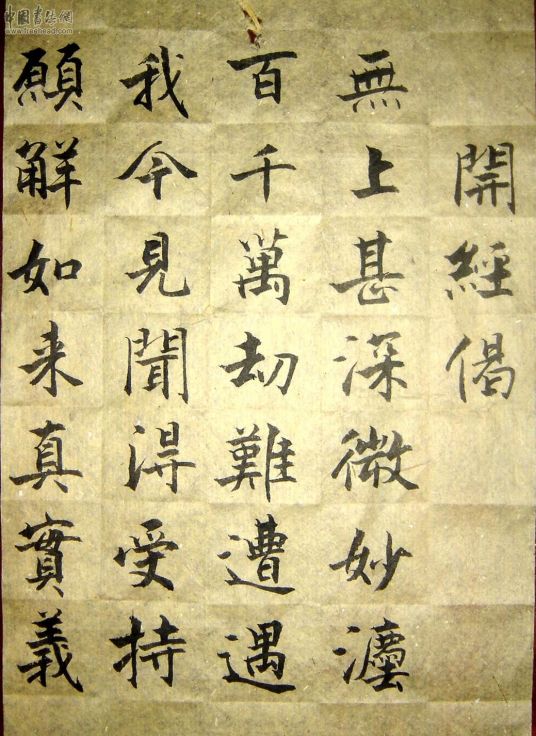 開經偈
無上甚深微妙灋
百千萬劫難遭遇
我今見聞得受持
願解如来真實義
中国書法網
www.freehead.com